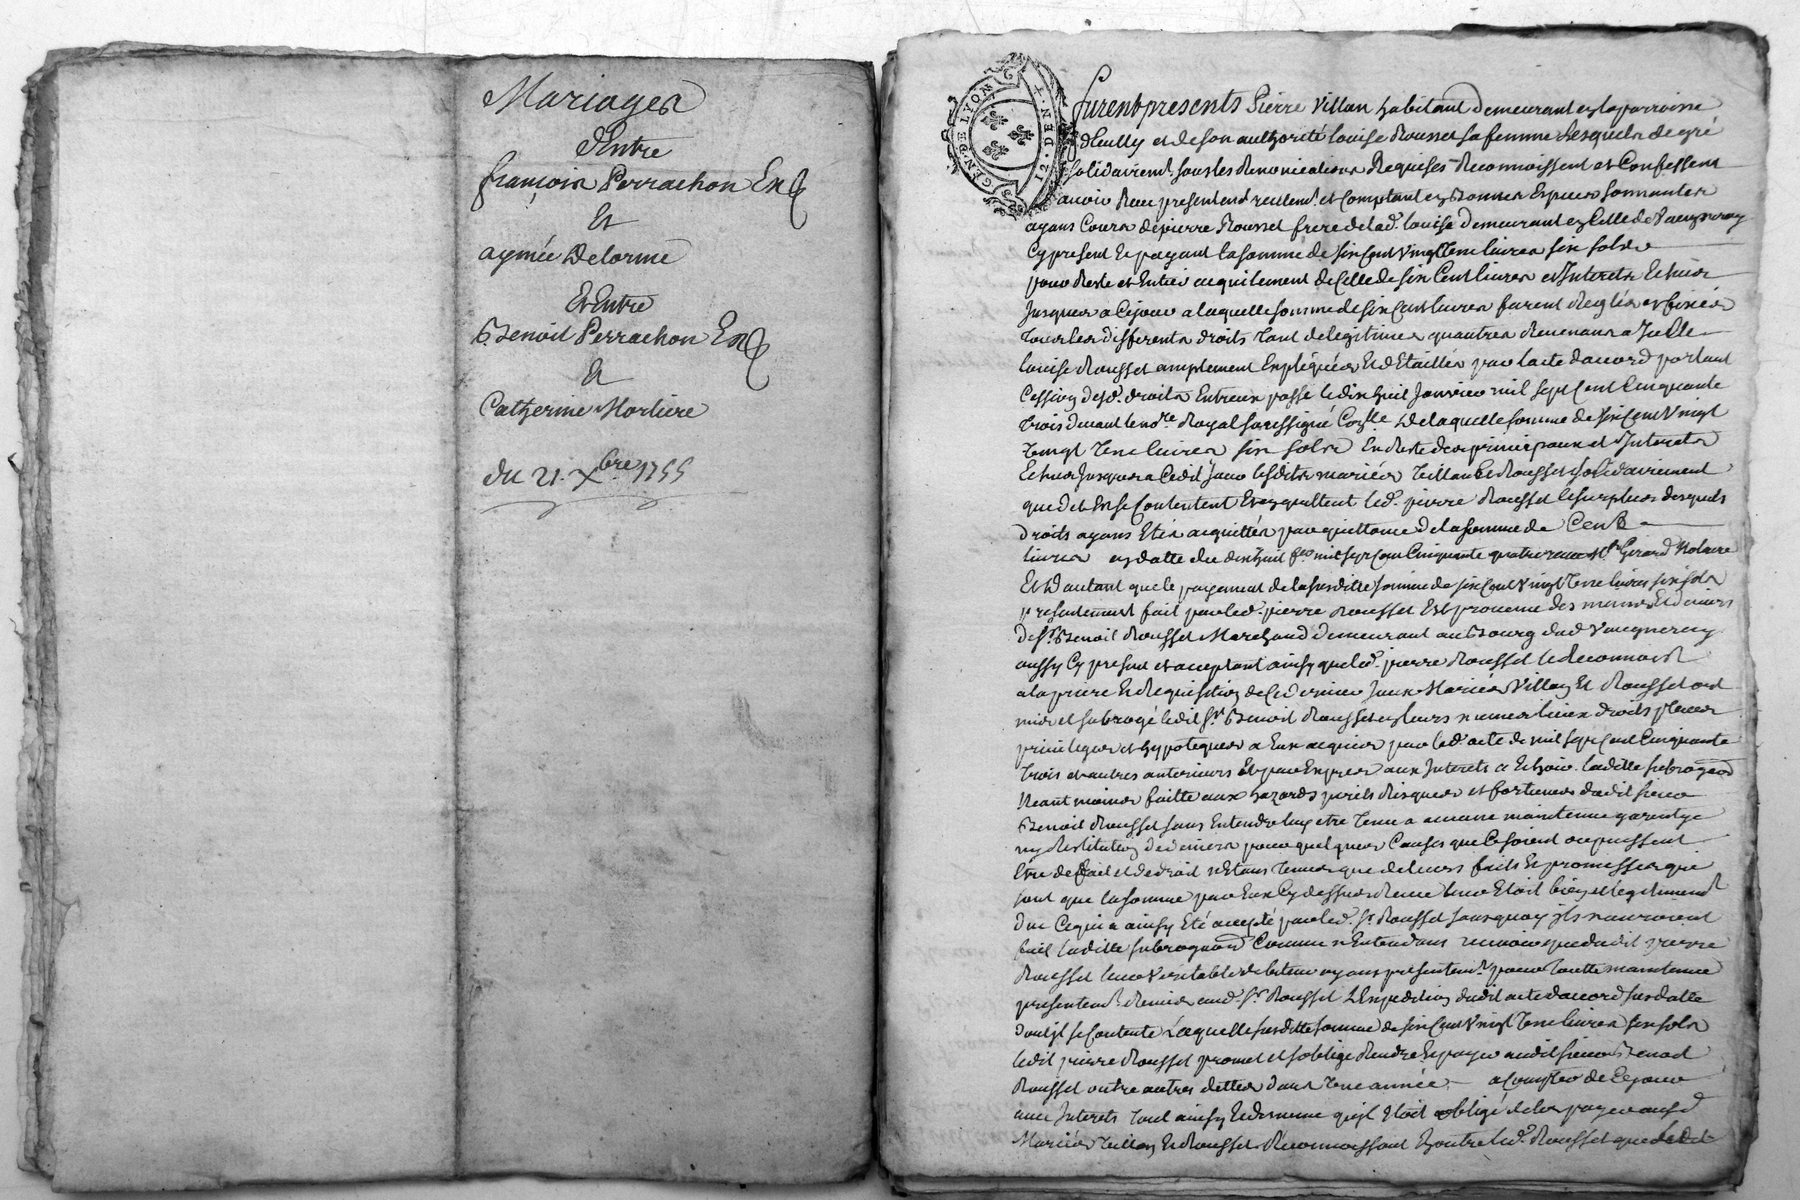 Mariages
d'Entre
françois Perrachon
Et
aymée Delorme
Et Entre
Benoit Perrachon
Et
Catherine Morliere
du 21. Xbre. 1755
GEN. DE LYON
12. DEN.
furent presents Pierre Villan habitant demeurant en la parroisse
et de son authorité Louise Rousset sa femme Lesquels de gré
solidairemt. sous les Renonciations Requises Reconnoissent et Confessent
avoir Receu presentemt reellemt. et Comptant en bonnes Especes sonnantes
ayans Cours de pierre Rousset frere de lad. Louise demeurant en Celle de Vaugneray
Cy present Et payant La somme de six Cent Vingt livres six sols
pour Reste et Entier acquitement de Celle de six Cent livres et Interets Echus
Jusques a Ce jour a laquelle somme de six Cent livres furent Reglés et fixés
Tous les differents droits tant de legitimes qu'autres Revenans a Jcelle
Louise Rousset amplement Expliqués Et détaillés par l'acte d'accord portant
Cession desd. droits Entreux passé le dix huit Janvier mil sept Cent Cinquante
Trois devant le nore. Royal soussigné de laquelle somme de six Cent Vingt
livres six sols En Reste des principaux et Interets
Echus Jusques a Cedit Jour lesdits mariés Villan Et Rousset solidairement
que dit Est se Contentent Et en quittent led. pierre Rousset le surplus desquels
droits ayans Eté acquittés par quittance de la somme de Cent
livres en datte du dix huit mil sept Cent Cinquante quatre Me. Girard Notaire
Et D'autant que le payement de la susditte somme de six Cent Vingt livres six sols
presentement fait par led. pierre Rousset Est provenu des mains Et deniers
de Sr. Benoit Rousset Marchand demeurant au Bourg dud Vaugneray
aussy Cy present et acceptant ainsy que led. pierre Rousset le Reconnoit
a la priere Et Requisition de Ce dernier Jceux Mariés Villan Et Rousset ont
mis et subrogé ledit Sr. Benoit Rousset en leurs noms lieux droits places
privileges et hypoteques a Eux acquis par led. acte de mil sept Cent Cinquante
Trois et autres anterieurs Et par Exprès aux Interets a Echoir. laditte subrogaon
Neant moins faitte aux hazards perils Risques et fortunes dudit sieur
Benoit Rousset sans Entendre luy etre Tenus a aucune maintenue garentye
ny Restitution de deniers pour quelques Causes que Ce soient ou puissent
Etre de fait et de droit n'Etans Tenus que de leurs faits Et promesses que
sont que la somme par Eux Cy dessus Receue leur Etoit bien et legitimemt
due Ce qui a ainsy Eté accepté par led. Sr. Rousset sans quoy ils n'auroient
fait laditte subrogaon Comme n'Entendans Reconnoitre que dudit pierre
Rousset leur Veritable debiteur ayans presentemt. pour Toutte maintenue
presentemt. Remis aud. Sr. Rousset L'Expedition dudit acte d'accord susdatté
dont il se Contente Laquelle susditte somme de six Cent Vingt livres six sols
ledit pierre Rousset promet et s'oblige Rendre Et payer audit sieur Benoit
Rousset outre autres dettes dans Une année a Compter de Ce jour
avec Interets Tout ainsy Et de meme qu'il Etoit obligé de les payer ausd
Mariés Villan Et Rousset Reconnoissant En outre led. Rousset que